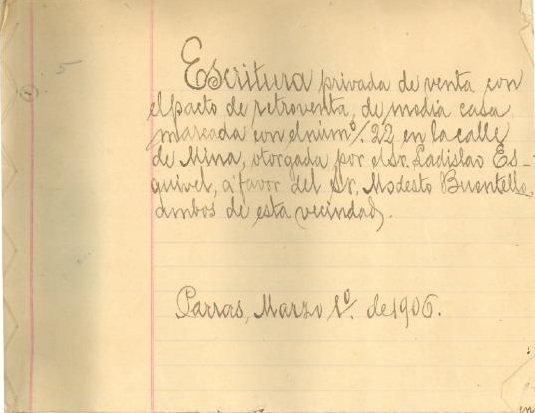 5
1
Escritura privada de venta con
el pacto de retroventa, de media casa
marcada con el núm⁰/. 22 en la calle
de Mina, otorgada por el Sr. Ladislao Es-
quivel, a favor del Sr. Modesto Buentello,
ambos de esta vecindad.
Parras, Marzo 1⁰. de 1906.
en